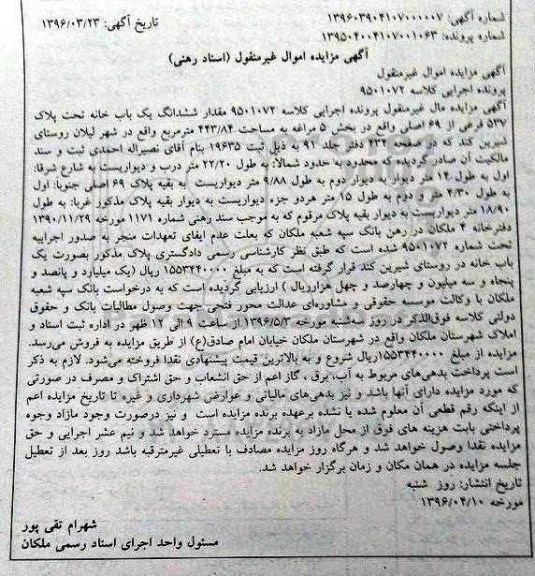 شماره آگهی: ۱۳۹۶۰۳۹۰۴۱۰۷۰۰۰۰۰۷
تاریخ آگهی: ۱۳۹۶/۰۳/۲۳
شماره پرونده: ۱۳۹۵۰۴۰۰۴۱۰۷۰۰۱۰۶۳
آگهی مزایده اموال غیرمنقول (اسناد رهنی)
آگهی مزایده اموال غیرمنقول
پرونده اجرایی کلاسه ۹۵۰۱۰۷۲
آگهی مزایده مال غیرمنقول پرونده اجرایی کلاسه ۹۵۰۱۰۷۲ مقدار ششدانگ یک باب خانه تحت پلاک
۵۳۷ فرعی از ۶۹ اصلی واقع در بخش ۵ مراغه به مساحت ۴۴۳/۸۴ مترمربع واقع در شهر لیلان روستای
شیرین کند که در صفحه ۴۳۲ دفتر جلد ۹۱ به ذیل ثبت ۱۹۶۳۵ بنام آقای نصیراله احمدی ثبت و سند
مالکیت آن صادر گردیده که محدود به حدود شمالاً: به طول ۲۲/۲۰ متر درب و دیواریست به شارع شرقا:
اول به طول ۱۴ متر دیوار به دیوار دوم به طول ۹/۸۸ متر دیواریست به بقیه پلاک ۶۹ اصلی جنوبا: اول
به طول ۴/۳۰ متر و دوم به طول ۱۵ متر هردو جزء دیواریست به دیوار بقیه پلاک مذکور غربا: به طول
۱۸/۹۰ متر دیواریست به دیوار بقیه پلاک مرقوم که به موجب سند رهنی شماره ۱۱۷۱ مورخه ۱۳۹۰/۱۱/۲۹
دفترخانه ۴ ملکان در رهن بانک سپه شعبه ملکان که بعلت عدم ایفای تعهدات منجر به صدور اجراییه
تحت شماره ۹۵۰۱۰۷۲ شده است که طبق نظر کارشناسی رسمی دادگستری پلاک مذکور بصورت یک
باب خانه در روستای شیرین کند قرار گرفته است که به مبلغ ۱۵۵۳۴۴۰۰۰۰ ریال (یک میلیارد و پانصد و
پنجاه و سه میلیون و چهارصد و چهل هزارریال) ارزیابی گردیده است که به درخواست بانک سپه شعبه
ملکان با وکالت موسسه حقوقی و مشاوره‌ای عدالت محور فتحی جهت وصول مطالبات بانک و حقوق
دولتی کلاسه فوق‌الذکر در روز سه‌شنبه مورخه ۱۳۹۶/۵/۳ از ساعت ۹ الی ۱۲ ظهر در اداره ثبت اسناد و
املاک شهرستان ملکان واقع در شهرستان ملکان خیابان امام صادق(ع) از طریق مزایده به فروش می‌رسد.
مزایده از مبلغ ۱۵۵۳۴۴۰۰۰۰ریال شروع و به بالاترین قیمت پیشنهادی نقدا فروخته می‌شود. لازم به ذکر
است پرداخت بدهی‌های مربوط به آب، برق ، گاز اعم از حق انشعاب و حق اشتراک و مصرف در صورتی
که مورد مزایده دارای آنها باشد و نیز بدهی‌های مالیاتی و عوارض شهرداری و غیره تا تاریخ مزایده اعم
از اینکه رقم قطعی آن معلوم شده یا نشده برعهده برنده مزایده است و نیز درصورت وجود مازاد وجوه
پرداختی بابت هزینه های فوق از محل مازاد به برنده مزایده مسترد خواهد شد و نیم عشر اجرایی و حق
مزایده نقدا وصول خواهد شد و هرگاه روز مزایده مصادف با تعطیلی غیرمترقبه باشد روز بعد از تعطیل
جلسه مزایده در همان مکان و زمان برگزار خواهد شد.
تاریخ انتشار: روز شنبه
مورخه ۱۳۹۶/۰۴/۱۰
شهرام تقی پور
مسئول واحد اجرای اسناد رسمی ملکان